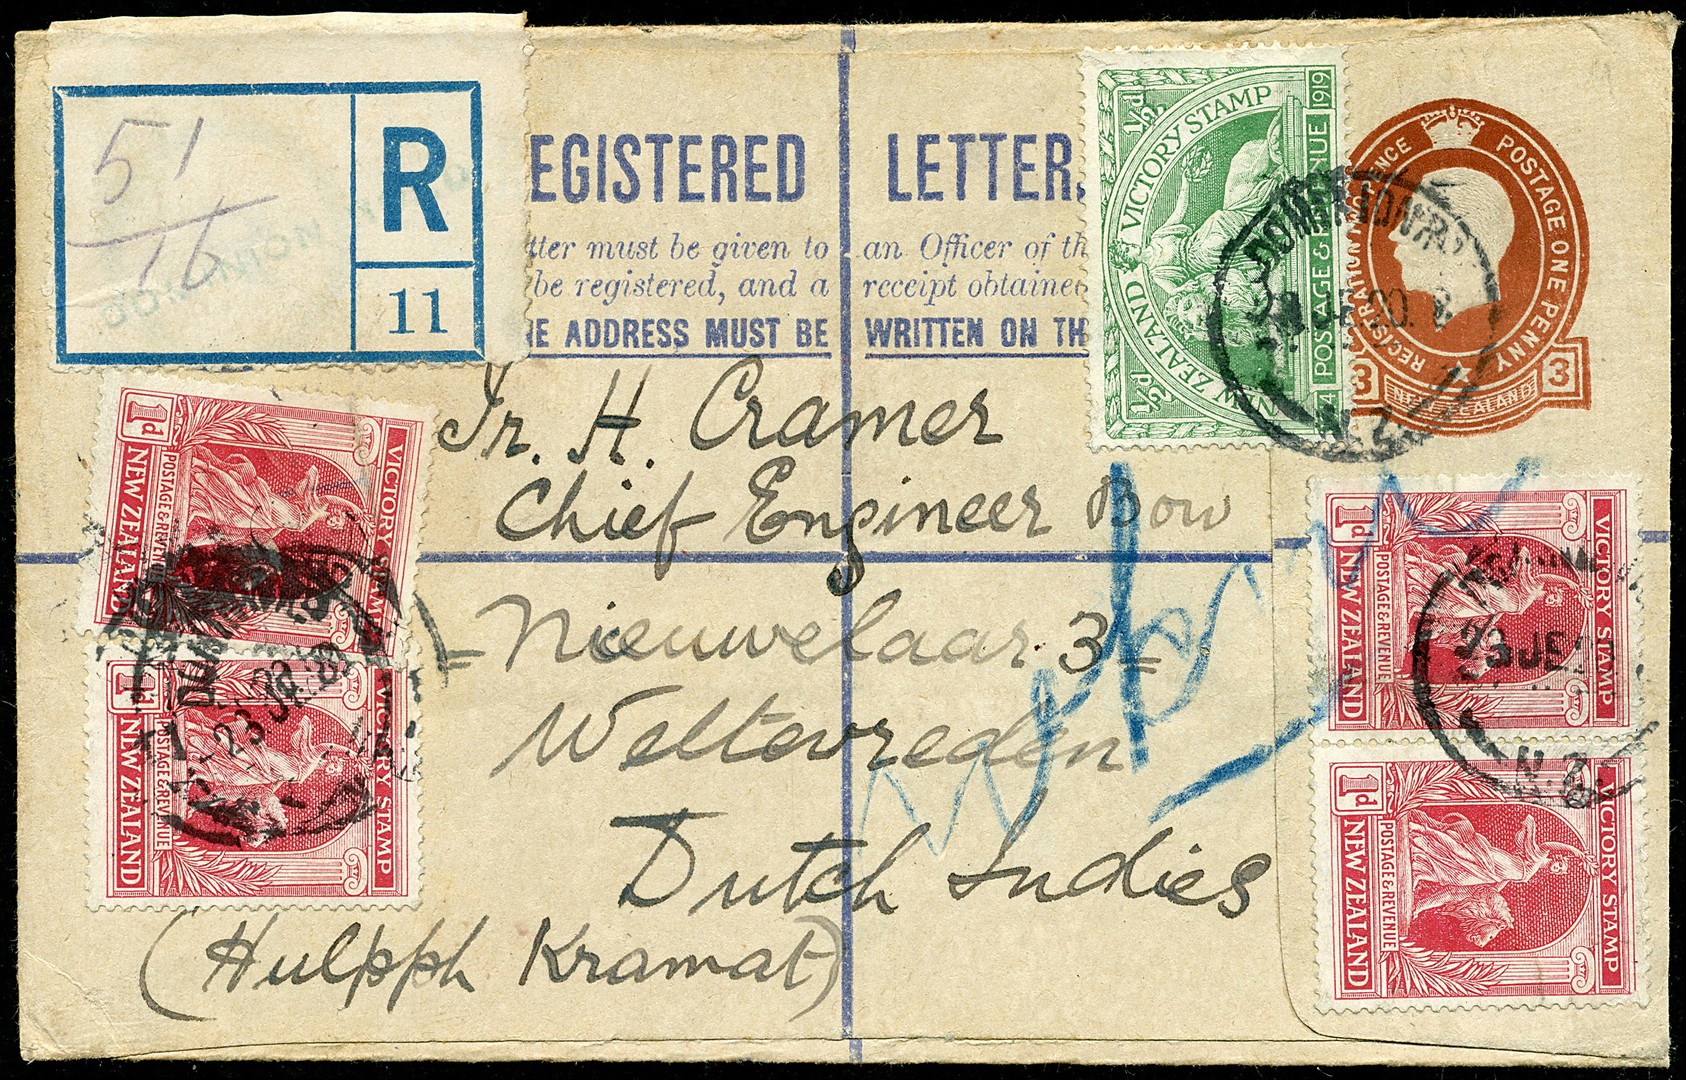 51
16
R
11
EGISTERED LETTER.
tter must be given to an Officer of th
be registered, and a receipt obtaine
HE ADDRESS MUST BE WRITTEN ON TH
Ir. H. Cramer
Chief Engineer Bow
= Nieuwelaar 3 =
Weltevreden
Dutch Indies
(Hulpph Kramat)
½d
½d
NEW ZEALAND VICTORY STAMP
POSTAGE & REVENUE 1919
POSTAGE ONE PENNY
REGISTRATION
3
3
NEW ZEALAND
N.Z.
1d
VICTORY STAMP
POSTAGE & REVENUE
NEW ZEALAND
1d
VICTORY STAMP
POSTAGE & REVENUE
NEW ZEALAND
23
1d
VICTORY STAMP
POSTAGE & REVENUE
NEW ZEALAND
23 JE
N.Z.
1d
VICTORY STAMP
POSTAGE & REVENUE
NEW ZEALAND